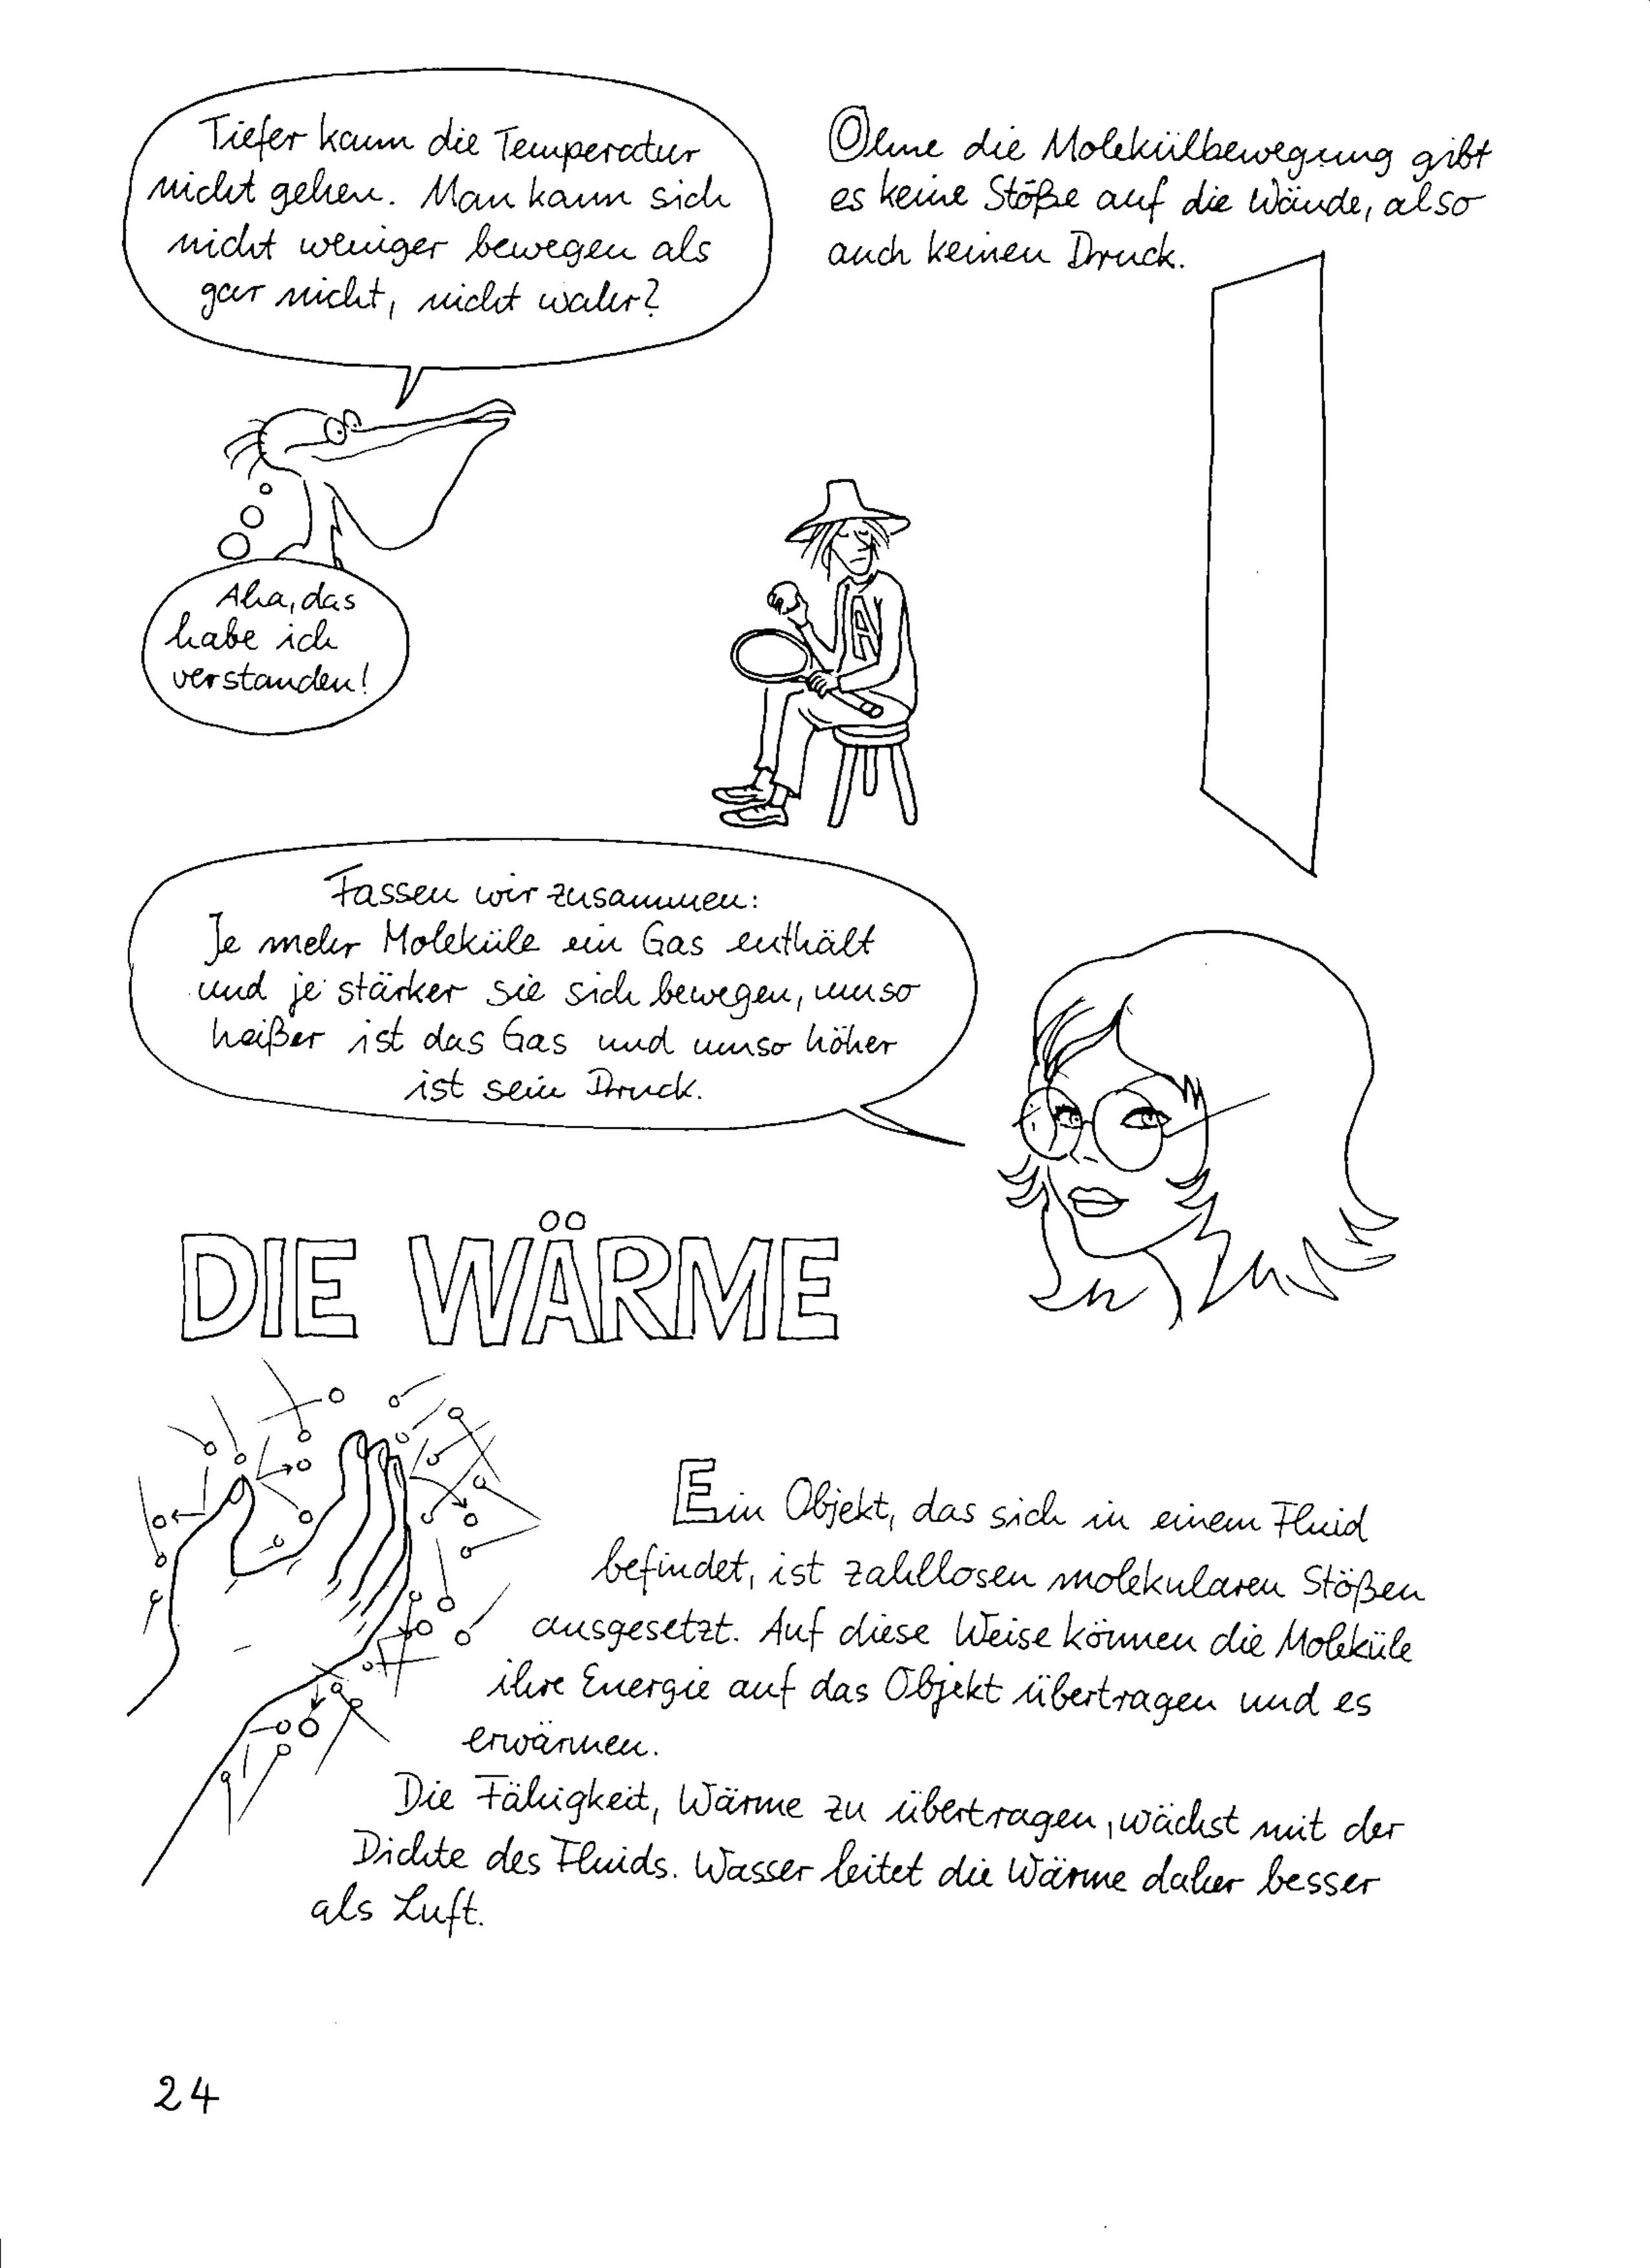 Tiefer kann die Temperatur
nicht gehen. Man kann sich
nicht weniger bewegen als
gar nicht, nicht wahr?
Ohne die Molekülbewegung gibt
es keine Stöße auf die Wände, also
auch keinen Druck.
Aha, das
habe ich
verstanden!
A
Fassen wir zusammen:
Je mehr Moleküle ein Gas enthält
und je stärker sie sich bewegen, umso
heißer ist das Gas und umso höher
ist sein Druck.
DIE WÄRME
Ein Objekt, das sich in einem Fluid
befindet, ist zahllosen molekularen Stößen
ausgesetzt. Auf diese Weise können die Moleküle
ihre Energie auf das Objekt übertragen und es
erwärmen.
Die Fähigkeit, Wärme zu übertragen, wächst mit der
Dichte des Fluids. Wasser leitet die Wärme daher besser
als Luft.
24